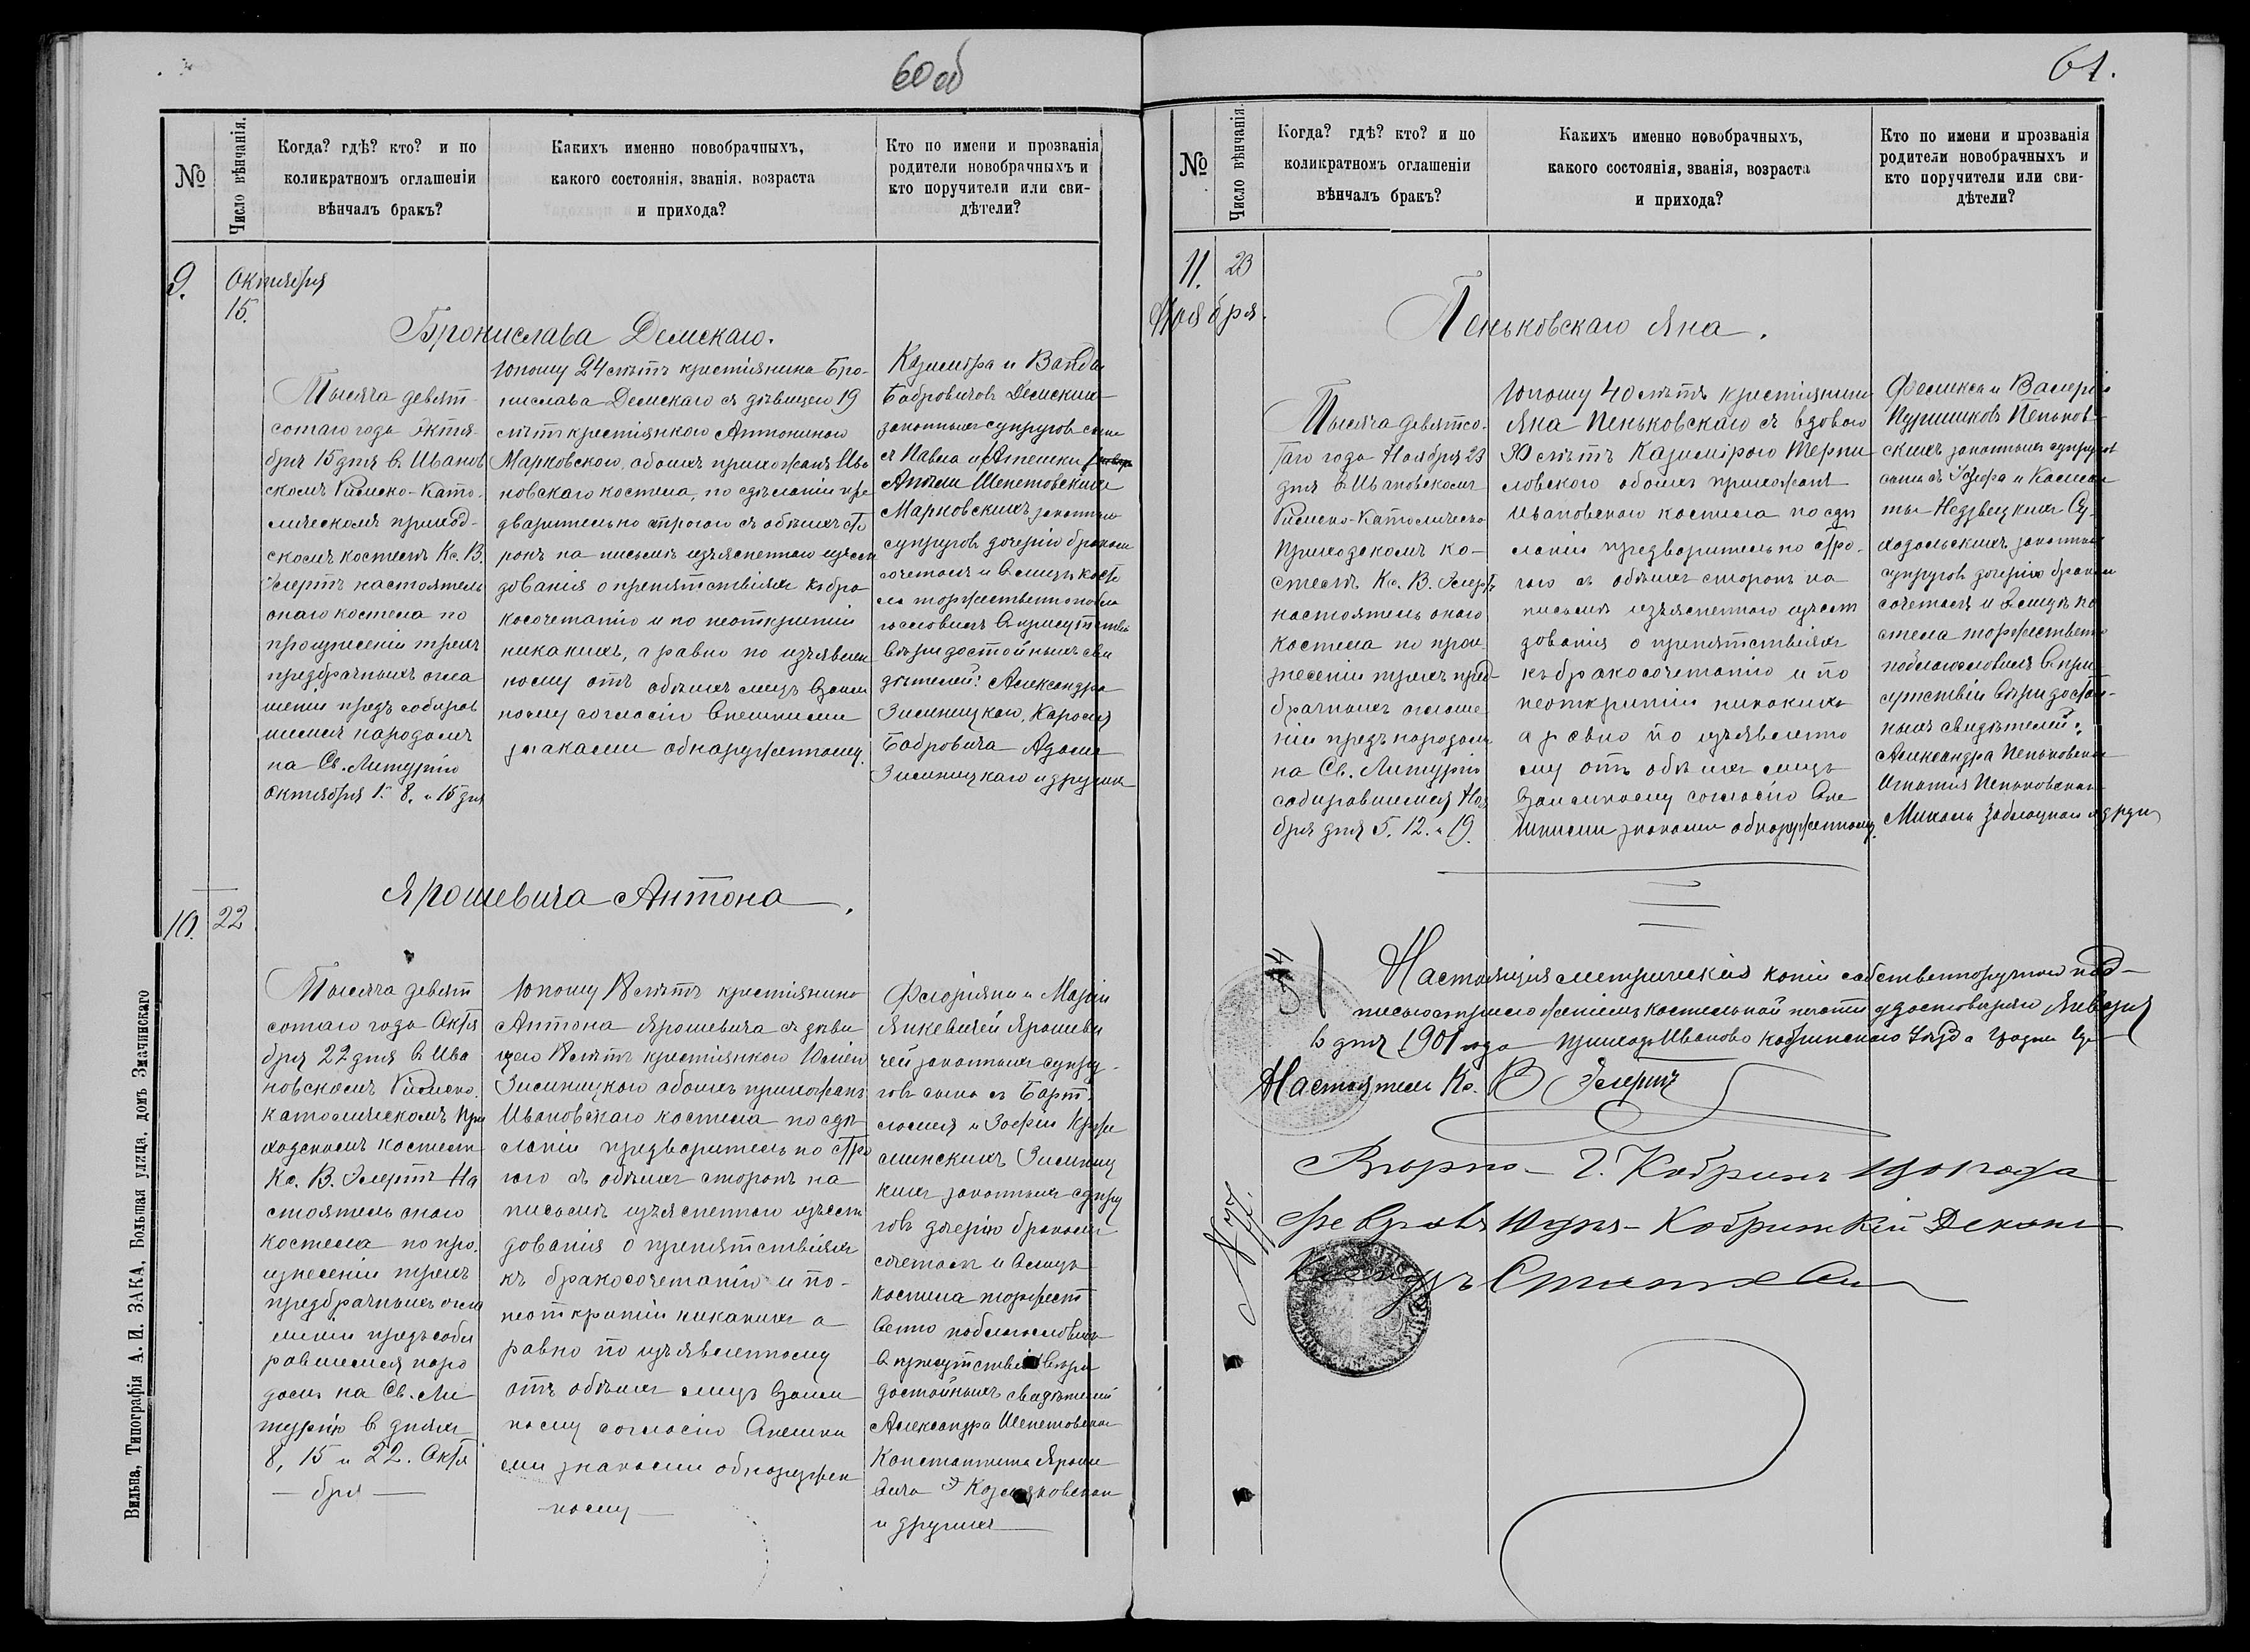 60об
№
Число вѣнчанія.
Когда? гдѣ? кто? и по
коликратномъ оглашеніи
вѣнчалъ бракъ?
Какихъ именно новобрачныхъ,
какого состоянія, званія, возраста
и прихода?
Кто по имени и прозванія
родители новобрачныхъ и
кто поручители или сви-
дѣтели?
9.
Октября
15.
Бронислава Демскаго.
Тысяча девят-
сотаго года Октя-
бря 15 дня въ Иванов
скомъ Римско-Като-
лическомъ приход-
скомъ костелѣ Кс. В.
Элертъ настоятель
онаго костела по
произнесеніи трехъ
предбрачныхъ огла
шеніи предъ собирав
шимся народомъ
на Св. Литургію
Октября 1. 8. и 15 дня
Юношу 24 лѣтъ крестіянина Бро-
нислава Демскаго съ дѣвицею 19
лѣтъ крестіянкою Антониною
Марковскою, обоихъ прихожанъ Ива
новскаго костела, по сдѣланіи пре
дварительно строгаго съ обѣихъ сто
ронъ на письмѣ изъясненнаго изслѣ
дованія о препятствіяхъ къ бра
косочетанію и по неоткрытіи
никакихъ, а равно по изъявлен
ному отъ обѣихъ лицъ взаим
ному согласію внешними
знаками обнаруженному.
Казиміра и Ванды
Бобровичовъ Демскихъ
законныхъ супруговъ сына
съ Павла и Агнешки
Анѣли Шепетовскихъ
Марковскихъ законныхъ
супруговъ дочерію бракомъ
сочеталъ и въ лицѣ косте
ла торжественно побла
гословилъ въ присутствіи
вѣридостойныхъ сви
дѣтелей: Александра
Зилиницкаго, Кароля
Бобровича Адама
Зилиницкаго и другихъ
10.
22
Ярошевича Антона.
Тысяча девят
сотаго года Октя
бря 22 дня въ Ива
новскомъ Римско
католическомъ при
ходскомъ костелѣ
Кс. В. Элертъ На
стоятель онаго
костела по про-
изнесеніи трехъ
предбрачныхъ огла
шеніи предъ соби
равшимся наро
домъ на Св. Ли
тургію въ дняхъ
8, 15 и 22. Октя
— бря —
Юношу лѣтъ крестіянина
Антона Ярошевича съ дѣви
цею лѣтъ крестіянкою Юліею
Зилиницкою обоихъ прихожанъ
Ивановскаго костела по сдѣ
ланіи предварительно стро
гаго съ обѣихъ сторонъ на
письмѣ изъясненнаго изслѣ
дованія о препятствіяхъ
къ бракосочетанію и по-
неоткрытіи никакихъ а
равно по изъявленному
отъ обѣихъ лицъ взаим
ному согласію внешни
ми знаками обнаружен
ному —
Флоріяна и Маріи
Янкевичей Ярошеви
чей законныхъ супру-
говъ сына съ Барт-
ломея и Зофіи
Зилиниц
кихъ законныхъ супру
говъ дочерію бракомъ
сочеталъ и въ лицѣ
костела торжест
венно поблагословилъ
въ присутствіи вѣри
достойныхъ свидѣтелей
Александра Шепетовскаго
Константина Ярошe
вича
и другихъ —
Вильна, Типографія А. И. ЗАКА, Большая улица, домъ Змачинскаго
61.
№
Число вѣнчанія.
Когда? гдѣ? кто? и по
коликратномъ оглашеніи
вѣнчалъ бракъ?
Какихъ именно новобрачныхъ,
какого состоянія, званія, возраста
и прихода?
Кто по имени и прозванія
родители новобрачныхъ и
кто поручители или сви-
дѣтели?
11.
23
Ноября.
Пеньковскаго Яна.
Тысяча девятсо-
таго года Ноября 23
дня въ Ивановскомъ
Римско-Католическо
приходскомъ ко-
стелѣ Кс. В. Элертъ
настоятель онаго
костела по прои
знесеніи трехъ пред-
брачныхъ оглаше
ніи предъ народомъ
на Св. Литургію
собиравшимся Ноя
бря дня 5. 12. и 19.
Юношу 40 лѣтъ крестіянина
Яна Пеньковскаго съ вдовою
30 лѣтъ Казимірою
обоихъ прихожанъ
Ивановскаго костела по сдѣ
ланіи предварительно стро-
гаго съ обѣихъ сторонъ на
письмѣ изъясненнаго изслѣ
дованія о препятствіяхъ
къ бракосочетанію и по
неоткрытіи никакихъ
а равно по изъявленно
му отъ обѣихъ лицъ
взаимному согласію вне
шними знаками обнаруженному.
Феликса и Валеріи
Пеньков
скихъ законныхъ супруговъ
сына съ Юзефа и
законныхъ
супруговъ дочерію бракомъ
сочеталъ и въ лицѣ ко
стела торжественно
поблагословилъ въ при
сутствіи вѣридостой-
ныхъ свидѣтелей:
Александра Пеньковскаго
Игнатія Пеньковскаго
Михала Заблоцкаго и други
Настоящія метрическія копіи собственноручною под-
писью съ приложеніемъ костельной печати удостовѣряю Января
дня 1901 года приходъ Иваново Кобринскаго Уѣзда Гродн Губ
Настоятель Кс. В Элертъ
Вѣрно — Г. Кобринъ 1901 года
Февраля дня — Кобринскій Деканъ
Ксендзъ